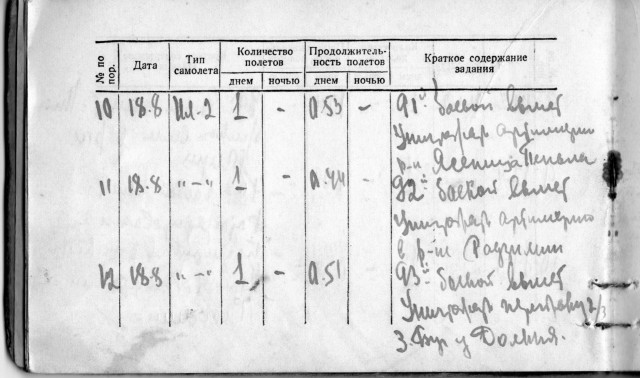 № по пор. Дата Тип самолета Количество полетов Продолжительность полетов Краткое содержание задания
днем ночью днем ночью
10 18.8 Ил-2 1 - 0.53 - 91й боевой вылет
Уничтожал артиллерию
р-н Ясеница
11 18.8 "-" 1 - 0.44 - 92й боевой вылет
Уничтожал артиллерию
в р-не Радзимин
12 18.8 "-" 1 - 0.51 93й боевой вылет
Уничтожал